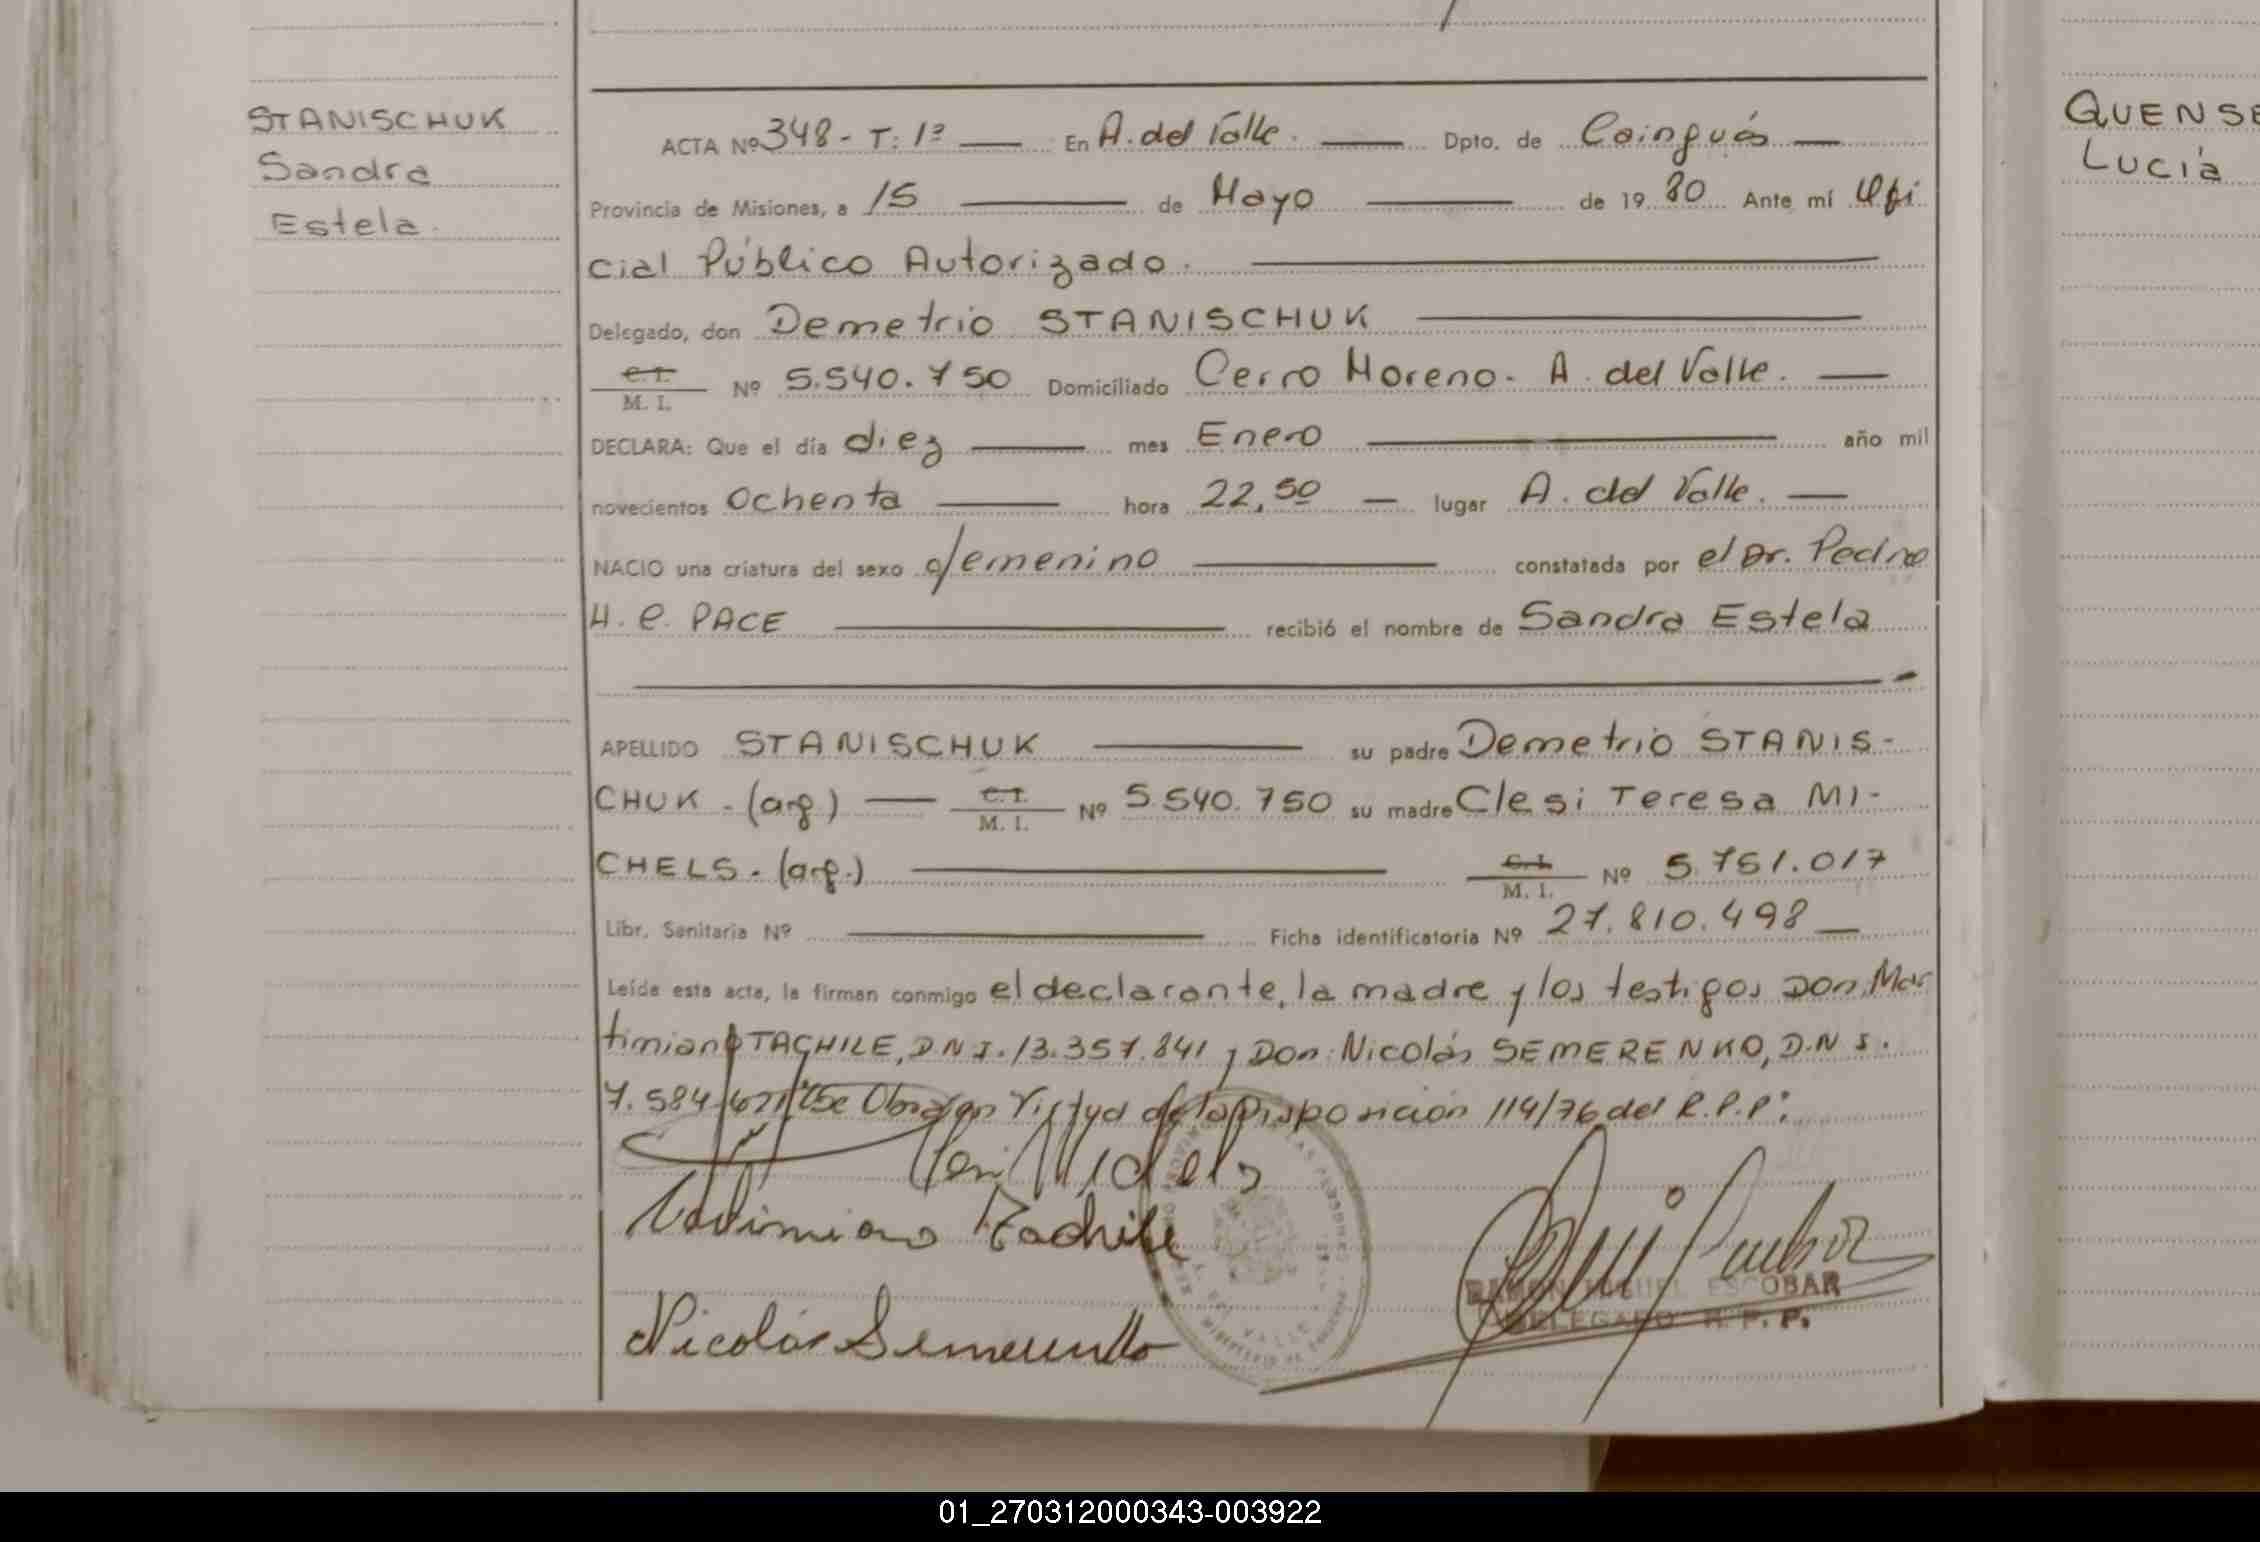 STANISCHUK
Sandra
Estela.
ACTA Nº 348 - T: 1º En A. del Valle. Dpto. de Cainguás
Provincia de Misiones, a 15 de Mayo de 19 80 Ante mí Ofi
cial Público Autorizado.
Delegado, don Demetrio STANISCHUK
C. I.
M. I. Nº 5.540.750 Domiciliado Cerro Moreno. A. del Valle.
DECLARA: Que el día diez mes Enero año mil
novecientos Ochenta hora 22,50 lugar A. del Valle.
NACIO una criatura del sexo femenino constatada por el Dr. Pedro
H. C. PACE recibió el nombre de Sandra Estela
APELLIDO STANISCHUK su padre Demetrio STANIS-
CHUK. (arg.) C. I. M. I. Nº 5.540.750 su madre Clesi Teresa MI-
CHELS. (arg.) C. I. M. I. Nº 5.751.017
Libr. Sanitaria Nº Ficha identificatoria Nº 27.810.498
Leída esta acta, la firman conmigo el declarante, la madre y los testigos Don Mar
timiano TACHILE, D.N.I. 13.357.841 y Don Nicolás SEMERENKO, D.N.I.
7.584. Se Obra en Virtud de la Disposición 114/76 del R.P.P.
Michels
Tachile
Nicolás Semerenko
RAMON MIGUEL ESCOBAR
DELEGADO R. P. P.
QUENSE
LUCIA
01_270312000343-003922